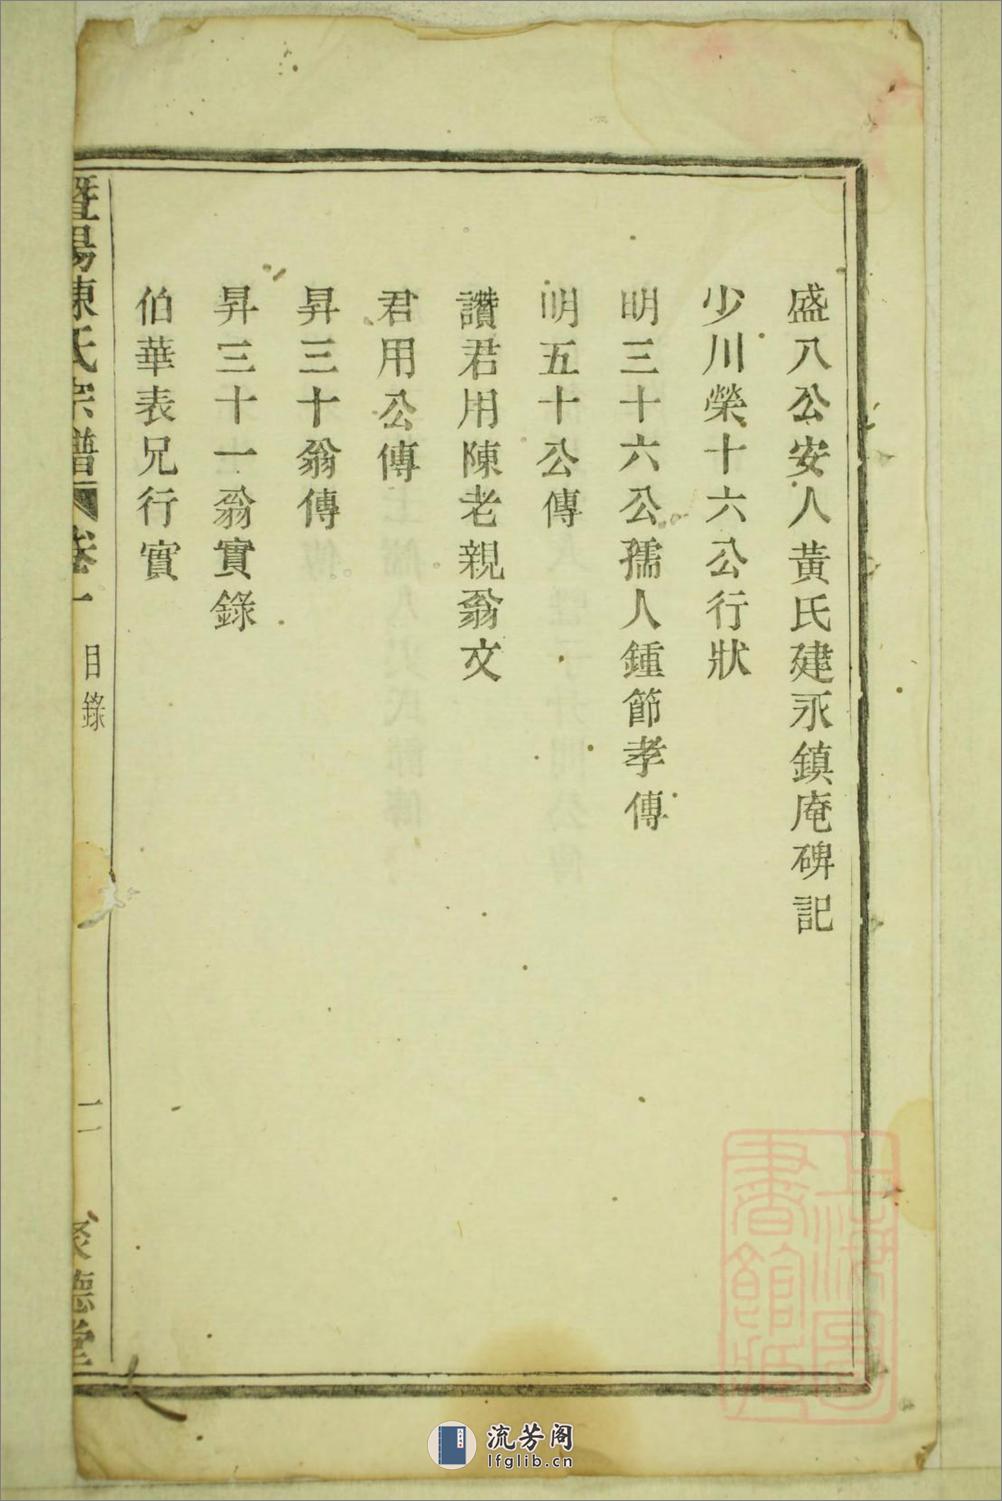 盛八公安人黄氏建永鎮庵碑記
少川榮十六公行狀
明三十六公孺人鍾節孝傳
明五十公傳
讚君用陳老親翁文
君用公傳
昇三十翁傳
昇三十一翁實錄
伯華表兄行實
暨陽陳氏宗譜 卷一 目錄 二 德堂
上海圖書館藏
流芳阁
lfglib.cn